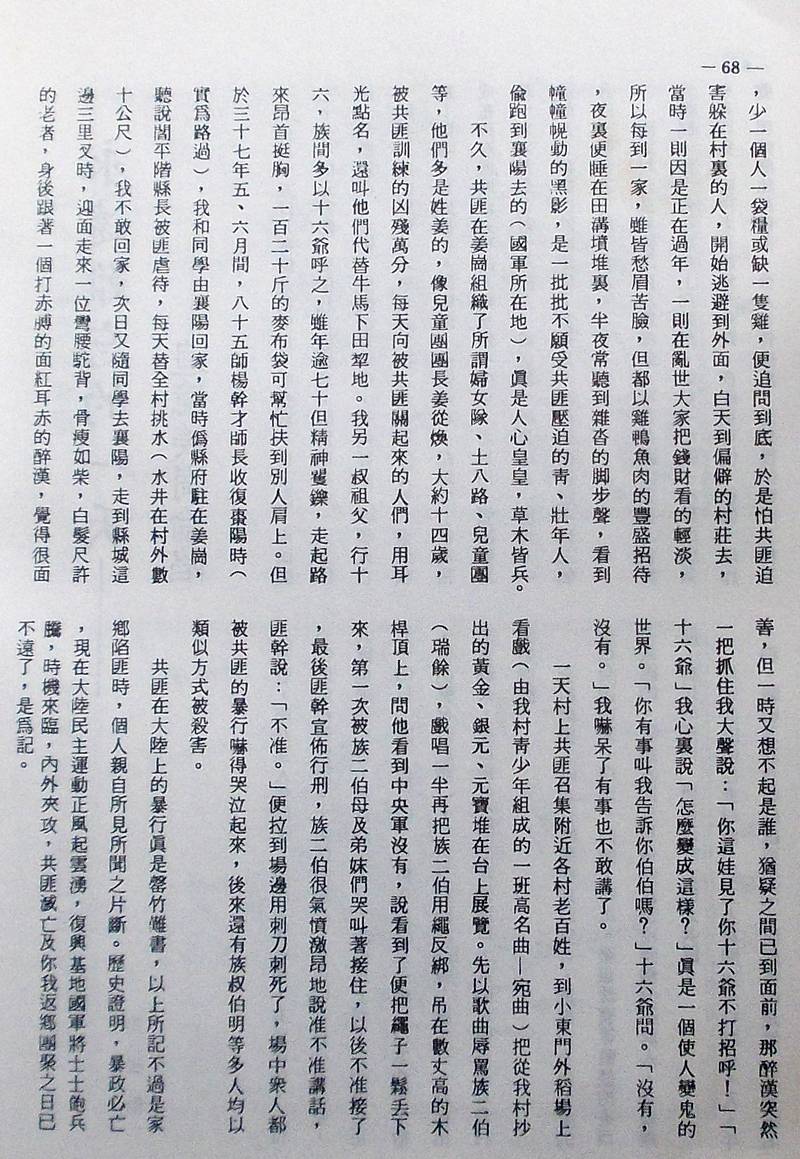 — 68 —
，少一個人一袋糧或缺一隻雞，便追問到底，於是怕共匪迫
害躲在村裏的人，開始逃避到外面，白天到偏僻的村莊去，
當時一則因是正在過年，一則在亂世大家把錢財看的輕淡，
所以每到一家，雖皆愁眉苦臉，但都以雞鴨魚肉的豐盛招待
，夜裏便睡在田溝墳堆裏，半夜常聽到雜沓的脚步聲，看到
幢幢幌動的黑影，是一批批不願受共匪壓迫的靑、壯年人，
偸跑到襄陽去的（國軍所在地），眞是人心皇皇，草木皆兵。
不久，共匪在姜崗組織了所謂婦女隊、土八路、兒童團
等，他們多是姓姜的，像兒童團團長姜從煥，大約十四歲，
被共匪訓練的凶殘萬分，每天向被共匪關起來的人們，用耳
光點名，還叫他們代替牛馬下田犂地。我另一叔祖父，行十
六，族間多以十六爺呼之，雖年逾七十但精神矍鑠，走起路
來昂首挺胸，一百二十斤的麥布袋可幫忙扶到別人肩上。但
於三十七年五、六月間，八十五師楊幹才師長收復棗陽時（
實爲路過），我和同學由襄陽回家，當時僞縣府駐在姜崗，
聽說閻平階縣長被匪虐待，每天替全村挑水（水井在村外數
十公尺），我不敢回家，次日又隨同學去襄陽，走到縣城這
邊三里叉時，迎面走來一位彎腰駝背，骨瘦如柴，白髮尺許
的老者，身後跟著一個打赤膊的面紅耳赤的醉漢，覺得很面
善，但一時又想不起是誰，猶疑之間已到面前，那醉漢突然
一把抓住我大聲說：「你這娃見了你十六爺不打招呼！」「
十六爺」我心裏說「怎麼變成這樣？」眞是一個使人變鬼的
世界。「你有事叫我告訴你伯伯嗎？」十六爺問。「沒有，
沒有。」我嚇呆了有事也不敢講了。
一天村上共匪召集附近各村老百姓，到小東門外稻場上
看戲（由我村靑少年組成的一班高名曲—宛曲）把從我村抄
出的黃金、銀元、元寶堆在台上展覽。先以歌曲辱罵族二伯
（瑞餘），戲唱一半再把族二伯用繩反綁，吊在數丈高的木
桿頂上，問他看到中央軍沒有，說看到了便把繩子一鬆丟下
來，第一次被族二伯母及弟妹們哭叫著接住，以後不准接了
，最後匪幹宣佈行刑，族二伯很氣憤激昂地說准不准講話，
匪幹說：「不准。」便拉到場邊用刺刀刺死了，場中衆人都
被共匪的暴行嚇得哭泣起來，後來還有族叔伯明等多人均以
類似方式被殺害。
共匪在大陸上的暴行眞是罄竹難書，以上所記不過是家
鄕陷匪時，個人親自所見所聞之片斷。歷史證明，暴政必亡
，現在大陸民主運動正風起雲湧，復興基地國軍將士士飽兵
騰，時機來臨，內外夾攻，共匪滅亡及你我返鄕團聚之日已
不遠了，是爲記。